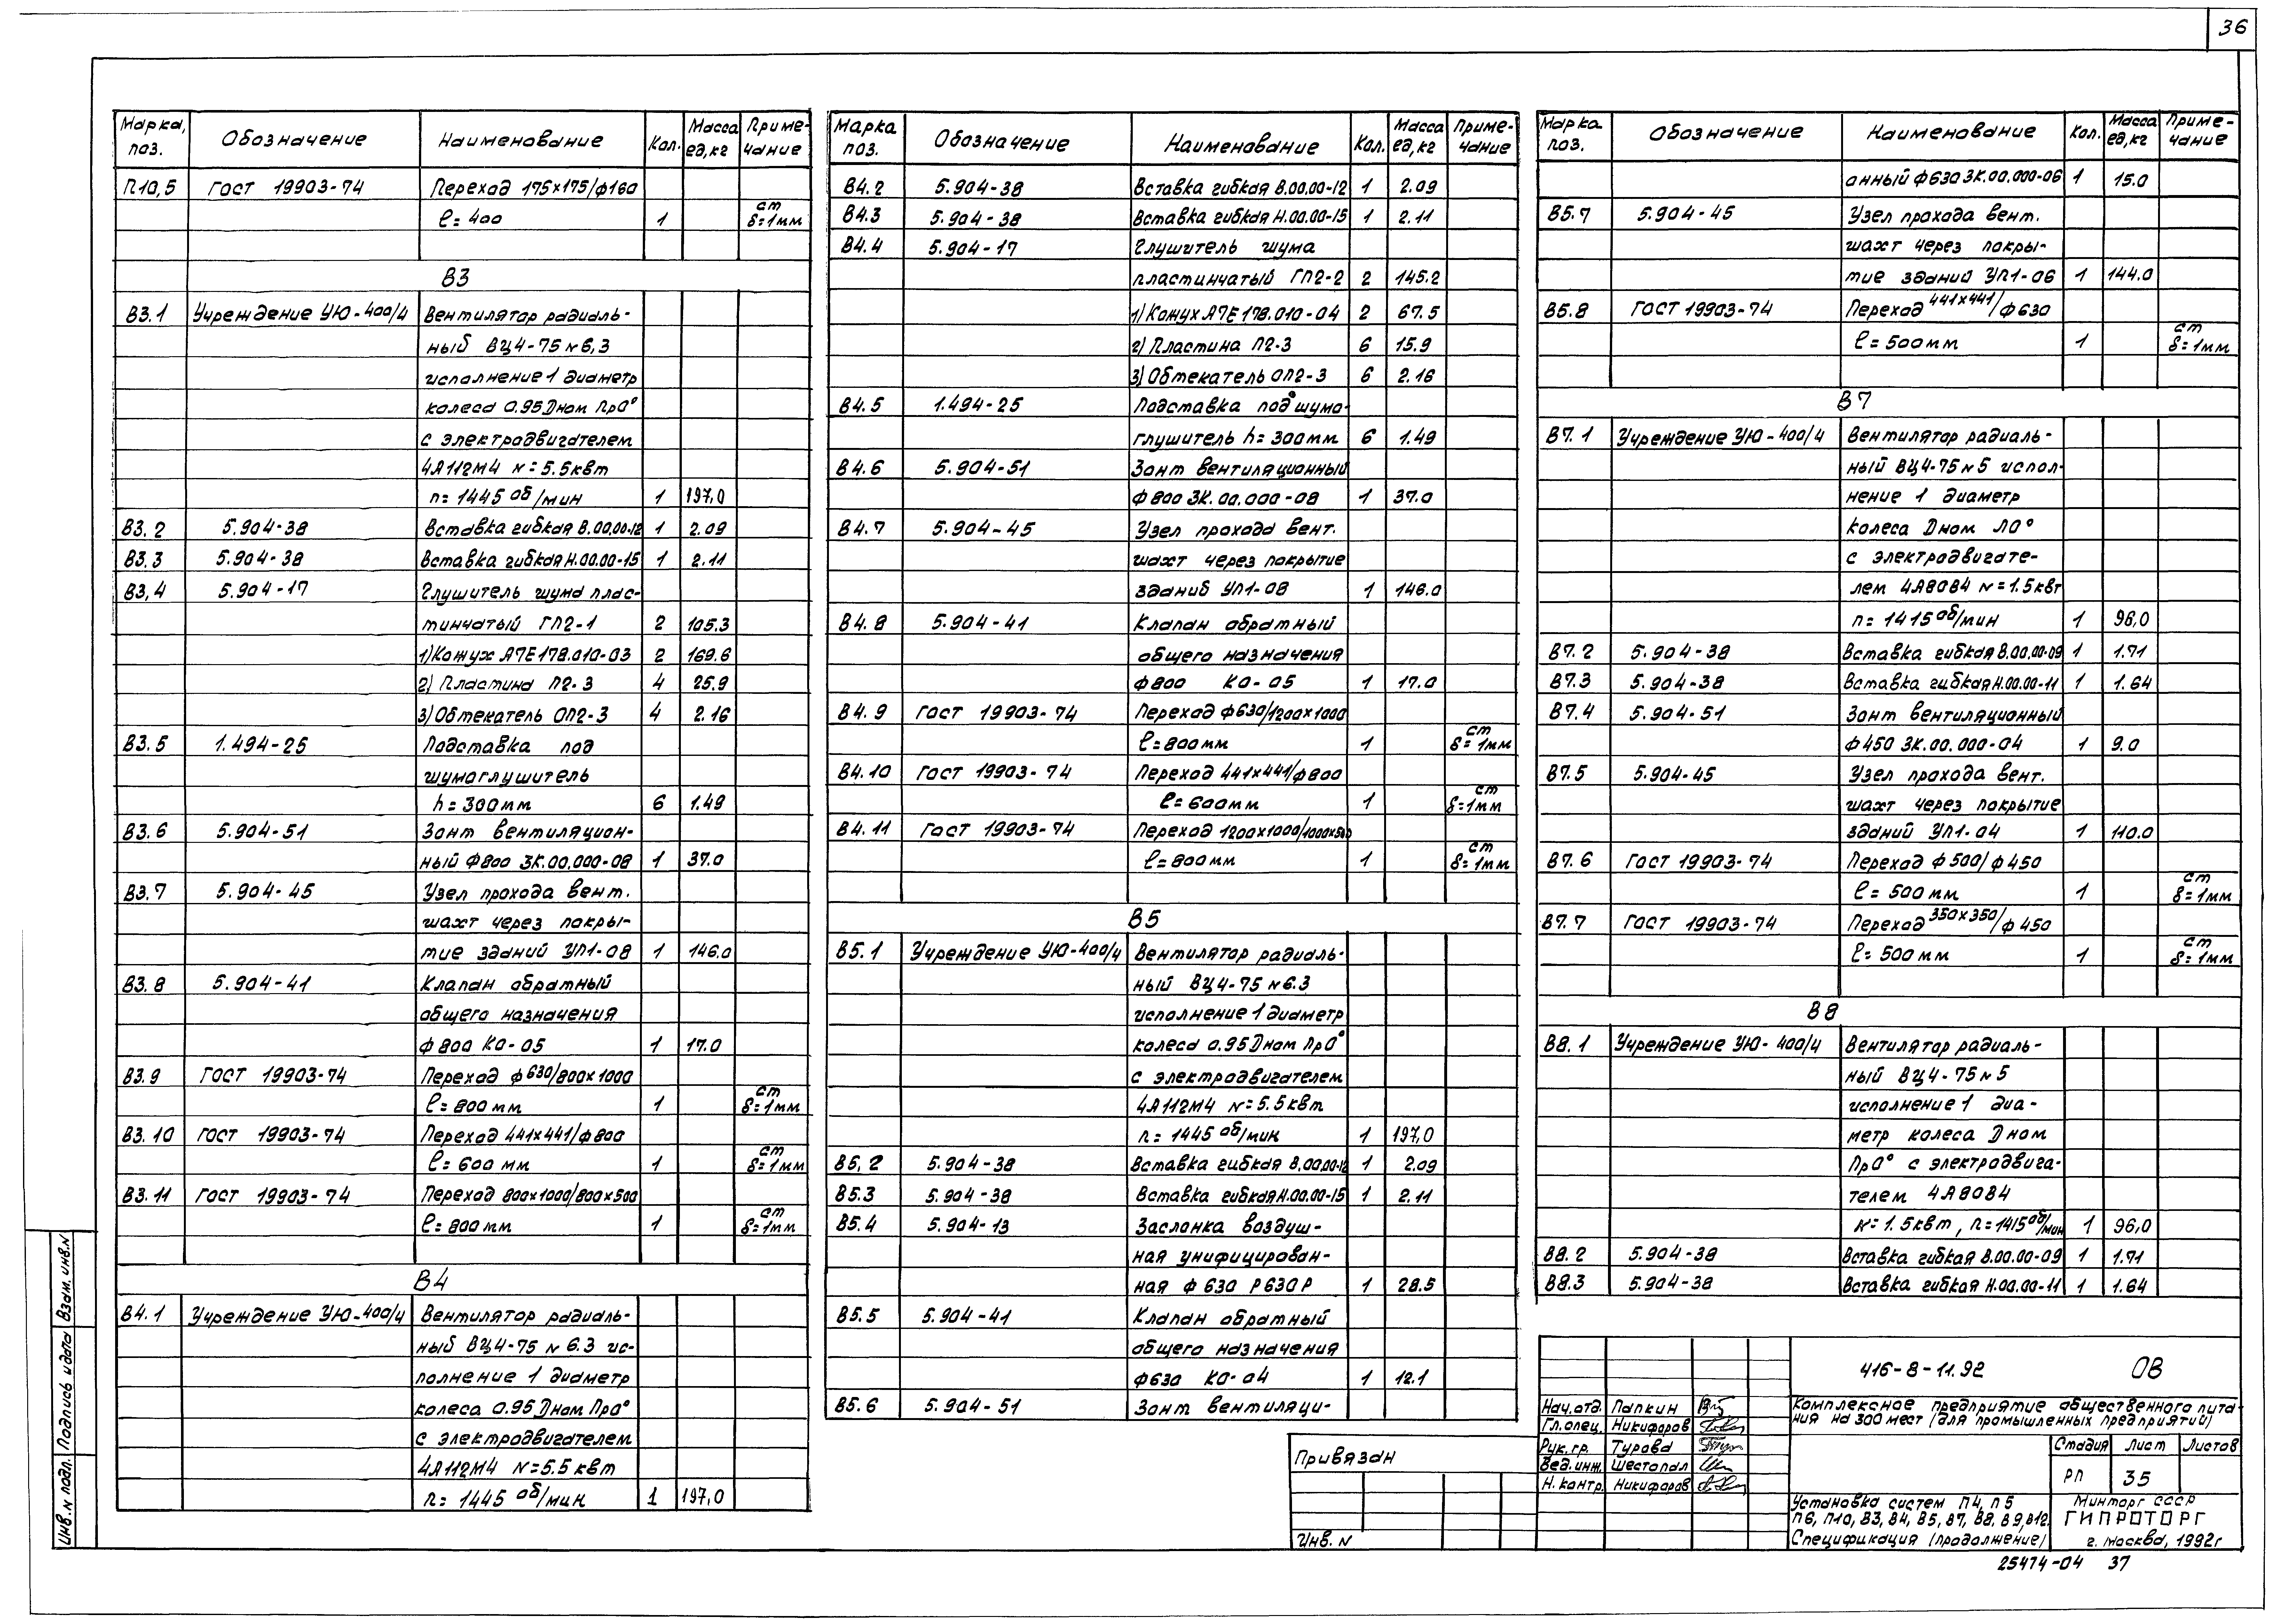 36
Марка, поз. Обозначение Наименование Кол. Масса ед,кг Приме-чание
П10,5 ГОСТ 19903-74 Переход 175×175/ф160
ℓ=400 1 ст δ=1мм
В3
В3.1 Учреждение УЮ-400/4 Вентилятор радиаль-
ный ВЦ4-75 N6,3
исполнение 1 диаметр
колеса 0.95 Dном Пр0°
с электродвигателем
4А112М4 N=5.5квт
n=1445 об/мин 1 197,0
В3.2 5.904-38 Вставка гибкая В.00.00-12 1 2.09
В3.3 5.904-38 Вставка гибкая Н.00.00-15 1 2.11
В3,4 5.904-17 Глушитель шума плас-
тинчатый ГП2-1 2 105.3
1) Кожух А7Е178.010-03 2 169.6
2) Пластина П2-3 4 25.9
3) Обтекатель ОП2-3 4 2.16
В3.5 1.494-25 Подставка под
шумоглушитель
h=300мм 6 1.49
В3.6 5.904-51 Зонт вентиляцион-
ный ф800 ЗК.00.000-08 1 37.0
В3.7 5.904-45 Узел прохода вент.
шахт через покры-
тие зданий УП1-08 1 146.0
В3.8 5.904-41 Клапан обратный
общего назначения
ф800 КО-05 1 17.0
В3.9 ГОСТ 19903-74 Переход ф630/800×1000
ℓ=800мм 1 ст δ=1мм
В3.10 ГОСТ 19903-74 Переход 441×441/ф800
ℓ=600мм 1 ст δ=1мм
В3.11 ГОСТ 19903-74 Переход 800×1000/800×500
ℓ=800мм 1 ст δ=1мм
В4
В4.1 Учреждение УЮ-400/4 Вентилятор радиаль-
ный ВЦ4-75 N6.3 ис-
полнение 1 диаметр
колеса 0.95 Dном Пр0°
с электродвигателем
4А112М4 N=5.5 квт
n=1445 об/мин 1 197,0
Марка поз. Обозначение Наименование Кол. Масса ед,кг Приме-чание
В4.2 5.904-38 Вставка гибкая В.00.00-12 1 2.09
В4.3 5.904-38 Вставка гибкая Н.00.00-15 1 2.11
В4.4 5.904-17 Глушитель шума
пластинчатый ГП2-2 2 145.2
1) Кожух А7Е178.010-04 2 67.5
2) Пластина П2-3 6 15.9
3) Обтекатель ОП2-3 6 2.16
В4.5 1.494-25 Подставка под шумо-
глушитель h=300мм 6 1.49
В4.6 5.904-51 Зонт вентиляционный
ф800 ЗК.00.000-08 1 37.0
В4.7 5.904-45 Узел прохода вент.
шахт через покрытие
зданий УП1-08 1 146.0
В4.8 5.904-41 Клапан обратный
общего назначения
ф800 КО-05 1 17.0
В4.9 ГОСТ 19903-74 Переход ф630/1200×1000
ℓ=800мм 1 ст δ=1мм
В4.10 ГОСТ 19903-74 Переход 441×441/ф800
ℓ=600мм 1 ст δ=1мм
В4.11 ГОСТ 19903-74 Переход 1200×1000/1000×500
ℓ=800мм 1 ст δ=1мм
В5
В5.1 Учреждение УЮ-400/4 Вентилятор радиаль-
ный ВЦ4-75 N6.3
исполнение 1 диаметр
колеса 0.95 Dном Пр0°
с электродвигателем
4А112М4 N=5.5квт
n=1445 об/мин 1 197,0
В5,2 5.904-38 Вставка гибкая В.00.00-12 1 2.09
В5.3 5.904-38 Вставка гибкая Н.00.00-15 1 2.11
В5.4 5.904-13 Заслонка воздуш-
ная унифицирован-
ная ф630 Р630Р 1 28.5
В5.5 5.904-41 Клапан обратный
общего назначения
ф630 КО-04 1 12.1
В5.6 5.904-51 Зонт вентиляци-
Марка поз. Обозначение Наименование Кол. Масса ед,кг Приме-чание
анный ф630 ЗК.00.000-06 1 15.0
В5.7 5.904-45 Узел прохода вент.
шахт через покры-
тие зданий УП1-06 1 144.0
В5.8 ГОСТ 19903-74 Переход 441×441/ф630
ℓ=500мм 1 ст δ=1мм
В7
В7.1 Учреждение УЮ-400/4 Вентилятор радиаль-
ный ВЦ4-75 N5 испол-
нение 1 диаметр
колеса Dном Л0°
с электродвигате-
лем 4А80В4 N=1.5квт
n=1415 об/мин 1 96,0
В7.2 5.904-38 Вставка гибкая В.00.00-09 1 1.71
В7.3 5.904-38 Вставка гибкая Н.00.00-11 1 1.64
В7.4 5.904-51 Зонт вентиляционный
ф450 ЗК.00.000-04 1 9.0
В7.5 5.904-45 Узел прохода вент.
шахт через покрытие
зданий УП1-04 1 110.0
В7.6 ГОСТ 19903-74 Переход ф500/ф450
ℓ=500мм 1 ст δ=1мм
В7.7 ГОСТ 19903-74 Переход 350×350/ф450
ℓ=500мм 1 ст δ=1мм
В8
В8.1 Учреждение УЮ-400/4 Вентилятор радиаль-
ный ВЦ4-75 N5
исполнение 1 диа-
метр колеса Dном
Пр0° с электродвига-
телем 4А80В4
N=1.5квт, n=1415 об/мин 1 96,0
В8.2 5.904-38 Вставка гибкая В.00.00-09 1 1.71
В8.3 5.904-38 Вставка гибкая Н.00.00-11 1 1.64
Взам. инв.N
Подпись и дата
Инв.N подл.
Привязан
Инв.N
Нач.отд. Папкин
Гл.спец. Никифоров
Рук.гр. Турова
Вед.инж. Шестопал
Н.контр. Никифоров
416-8-11.92 ОВ
Комплексное предприятие общественного пита-
ния на 300 мест (для промышленных предприятий)
Стадия Лист Листов
РП 35
Установка систем П4, П5
П6, П10, В3, В4, В5, В7, В8, В9, В12.
Спецификация (продолжение)
Минторг СССР
ГИПРОТОРГ
г. Москва, 1992г
25474-04 37